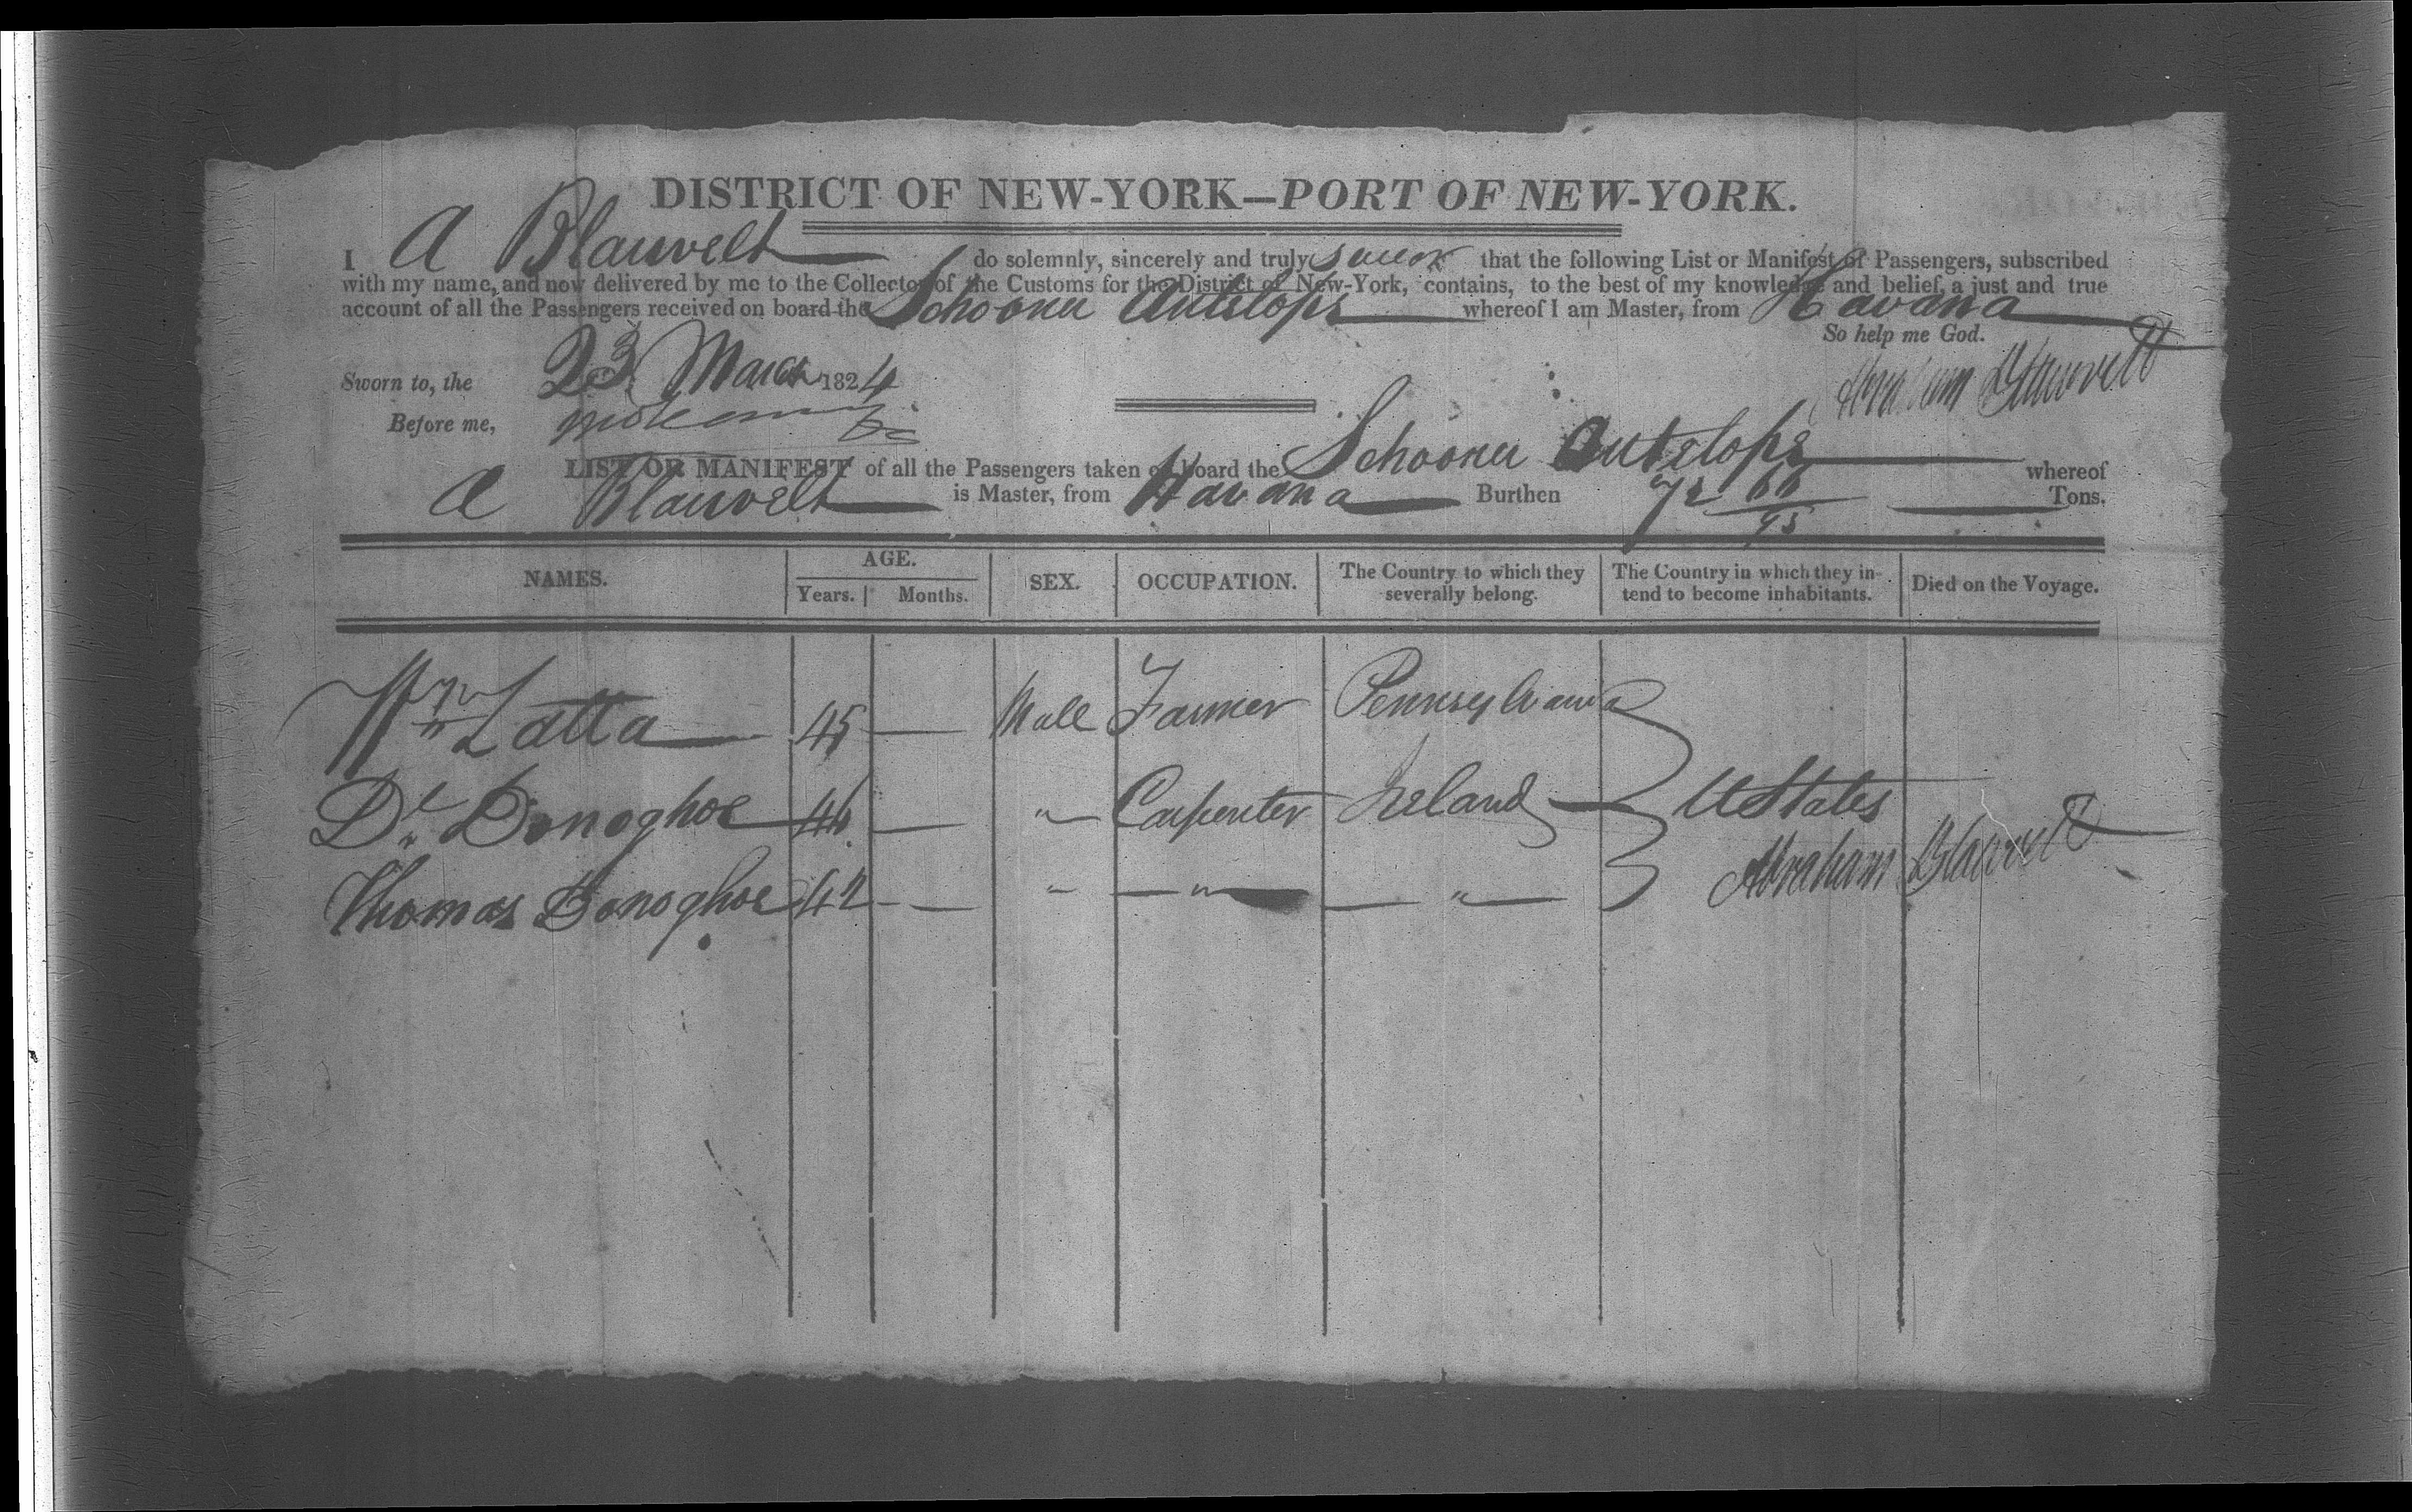 DISTRICT OF NEW-YORK—PORT OF NEW-YORK.
I A Blauvelt do solemnly, sincerely and truly swear that the following List or Manifest of Passengers, subscribed
with my name, and now delivered by me to the Collector of the Customs for the District of New-York, contains, to the best of my knowledge and belief, a just and true
account of all the Passengers received on board the Schooner Antelope whereof I am Master, from Havana
So help me God.
Sworn to, the 23 March 1824
Abraham Blauvelt
Before me,
LIST OR MANIFEST of all the Passengers taken on board the Schooner Antelope whereof
A Blauvelt is Master, from Havana Burthen 72 66/95 Tons.
NAMES. AGE. Years. Months. SEX. OCCUPATION. The Country to which they severally belong. The Country in which they intend to become inhabitants. Died on the Voyage.
Wm Latta 45 — Male Farmer Pennsylvania
Dl Donoghoe 46 — " Carpenter Ireland U States
Thomas Donoghoe 42 — " " "
Abraham Blauvelt